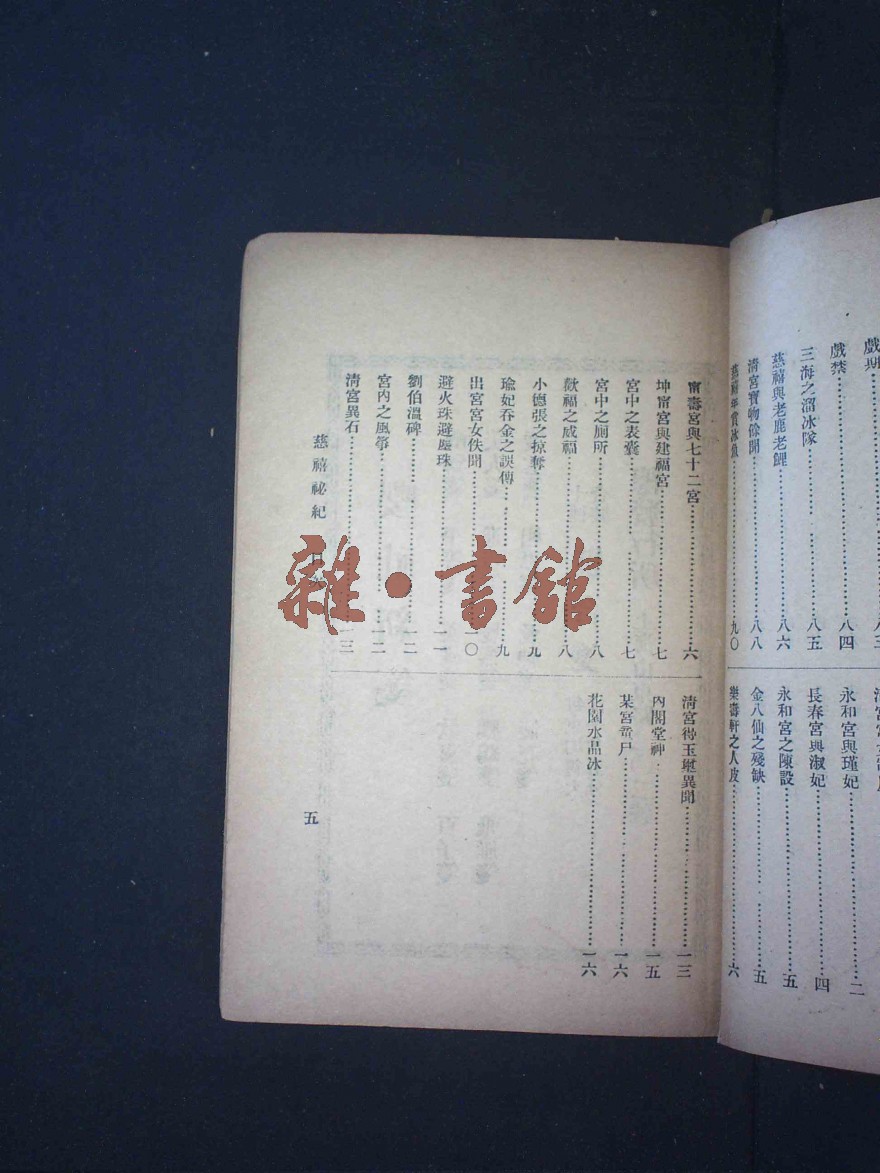 戲禁……八四
三海之溜冰隊……八五
慈禧與老鹿老鯉……八六
清宮寶物餘聞……八八
慈禧年賞冰魚……九〇
永和宮與瑾妃……二
長春宮與淑妃……四
永和宮之陳設……五
金八仙之殘缺……五
樂壽軒之人皮……六
甯壽宮與七十二宮……六
坤甯宮與建福宮……七
宮中之表囊……七
宮中之廁所……八
歡福之威福……八
小德張之掠奪……九
瑜妃吞金之誤傳……九
出宮宮女佚聞……一〇
避火珠避塵珠……一一
劉伯溫碑……一二
宮內之風箏……一二
清宮異石……一三
清宮得玉璽異聞……一三
內閣堂神……一五
某宮
尸……一六
花園水晶冰……一六
慈禧祕紀
五
雜·書館